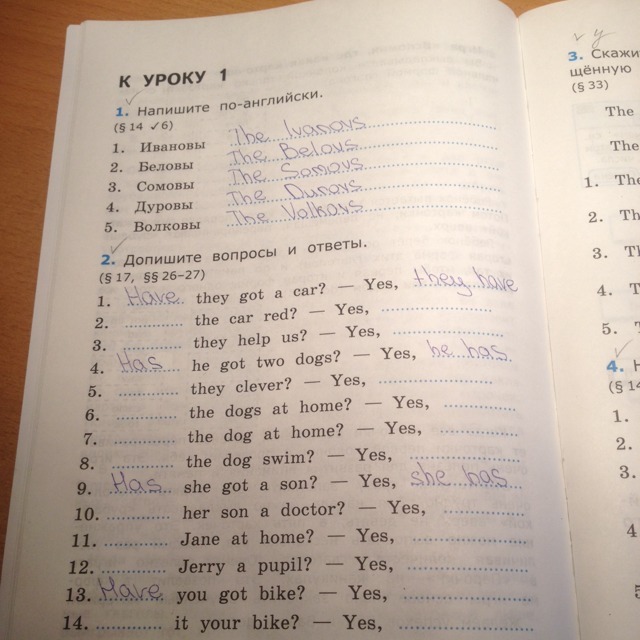 К УРОКУ 1
1. Напишите по-английски.
(§ 14 ✓6)
1. Ивановы The Ivanovs
2. Беловы The Belovs
3. Сомовы The Somovs
4. Дуровы The Durovs
5. Волковы The Volkovs
2. Допишите вопросы и ответы.
(§ 17, §§ 26–27)
1. Have they got a car? — Yes, they have
2. ............ the car red? — Yes, ....................
3. ............ they help us? — Yes, ....................
4. Has he got two dogs? — Yes, he has
5. ............ they clever? — Yes, ....................
6. ............ the dogs at home? — Yes, ....................
7. ............ the dog at home? — Yes, ....................
8. ............ the dog swim? — Yes, ....................
9. Has she got a son? — Yes, she has
10. ............ her son a doctor? — Yes, ....................
11. ............ Jane at home? — Yes, ....................
12. ............ Jerry a pupil? — Yes, ....................
13. Have you got bike? — Yes, ....................
14. ............ it your bike? — Yes, ....................
у
3. Скажи
щённую
(§ 33)
The
The
1. The
2. Th
3. Th
4. T
5. T
4. Н
(§ 14
1.
2.
3.
4
5